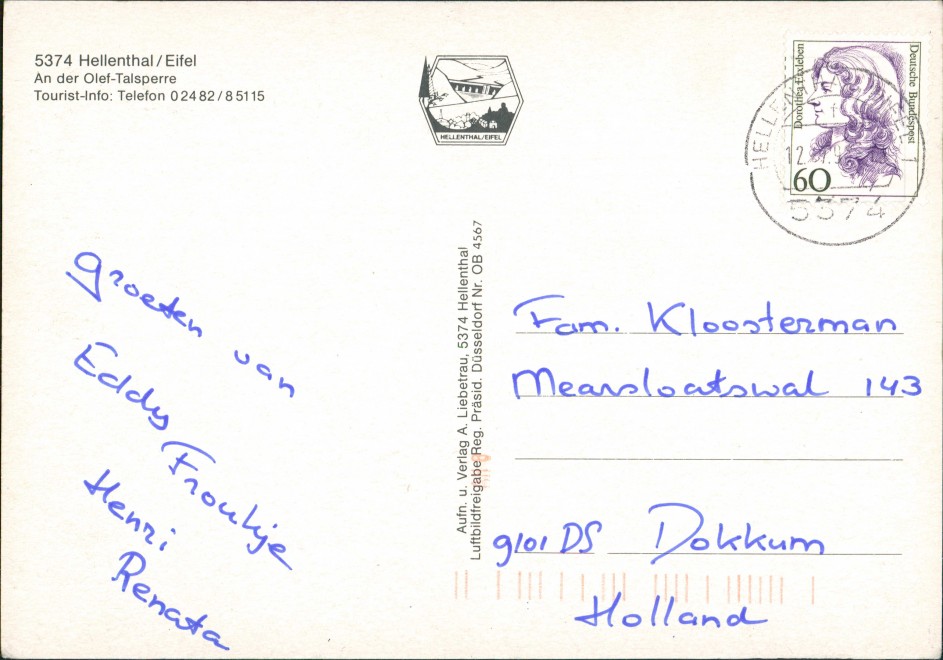 5374 Hellenthal/Eifel
An der Olef-Talsperre
Tourist-Info: Telefon 02482/85115
HELLENTHAL/EIFEL
Dorothea Erxleben
Deutsche Bundespost
60
5374
groeten van
Eddy Froukje
Henri
Renata
Aufn. u. Verlag A. Liebetrau, 5374 Hellenthal
Luftbildfreigabe Reg. Präsid. Düsseldorf Nr. OB 4567
Fam. Kloosterman
Mearsloatswal 143
9101 DS Dokkum
Holland